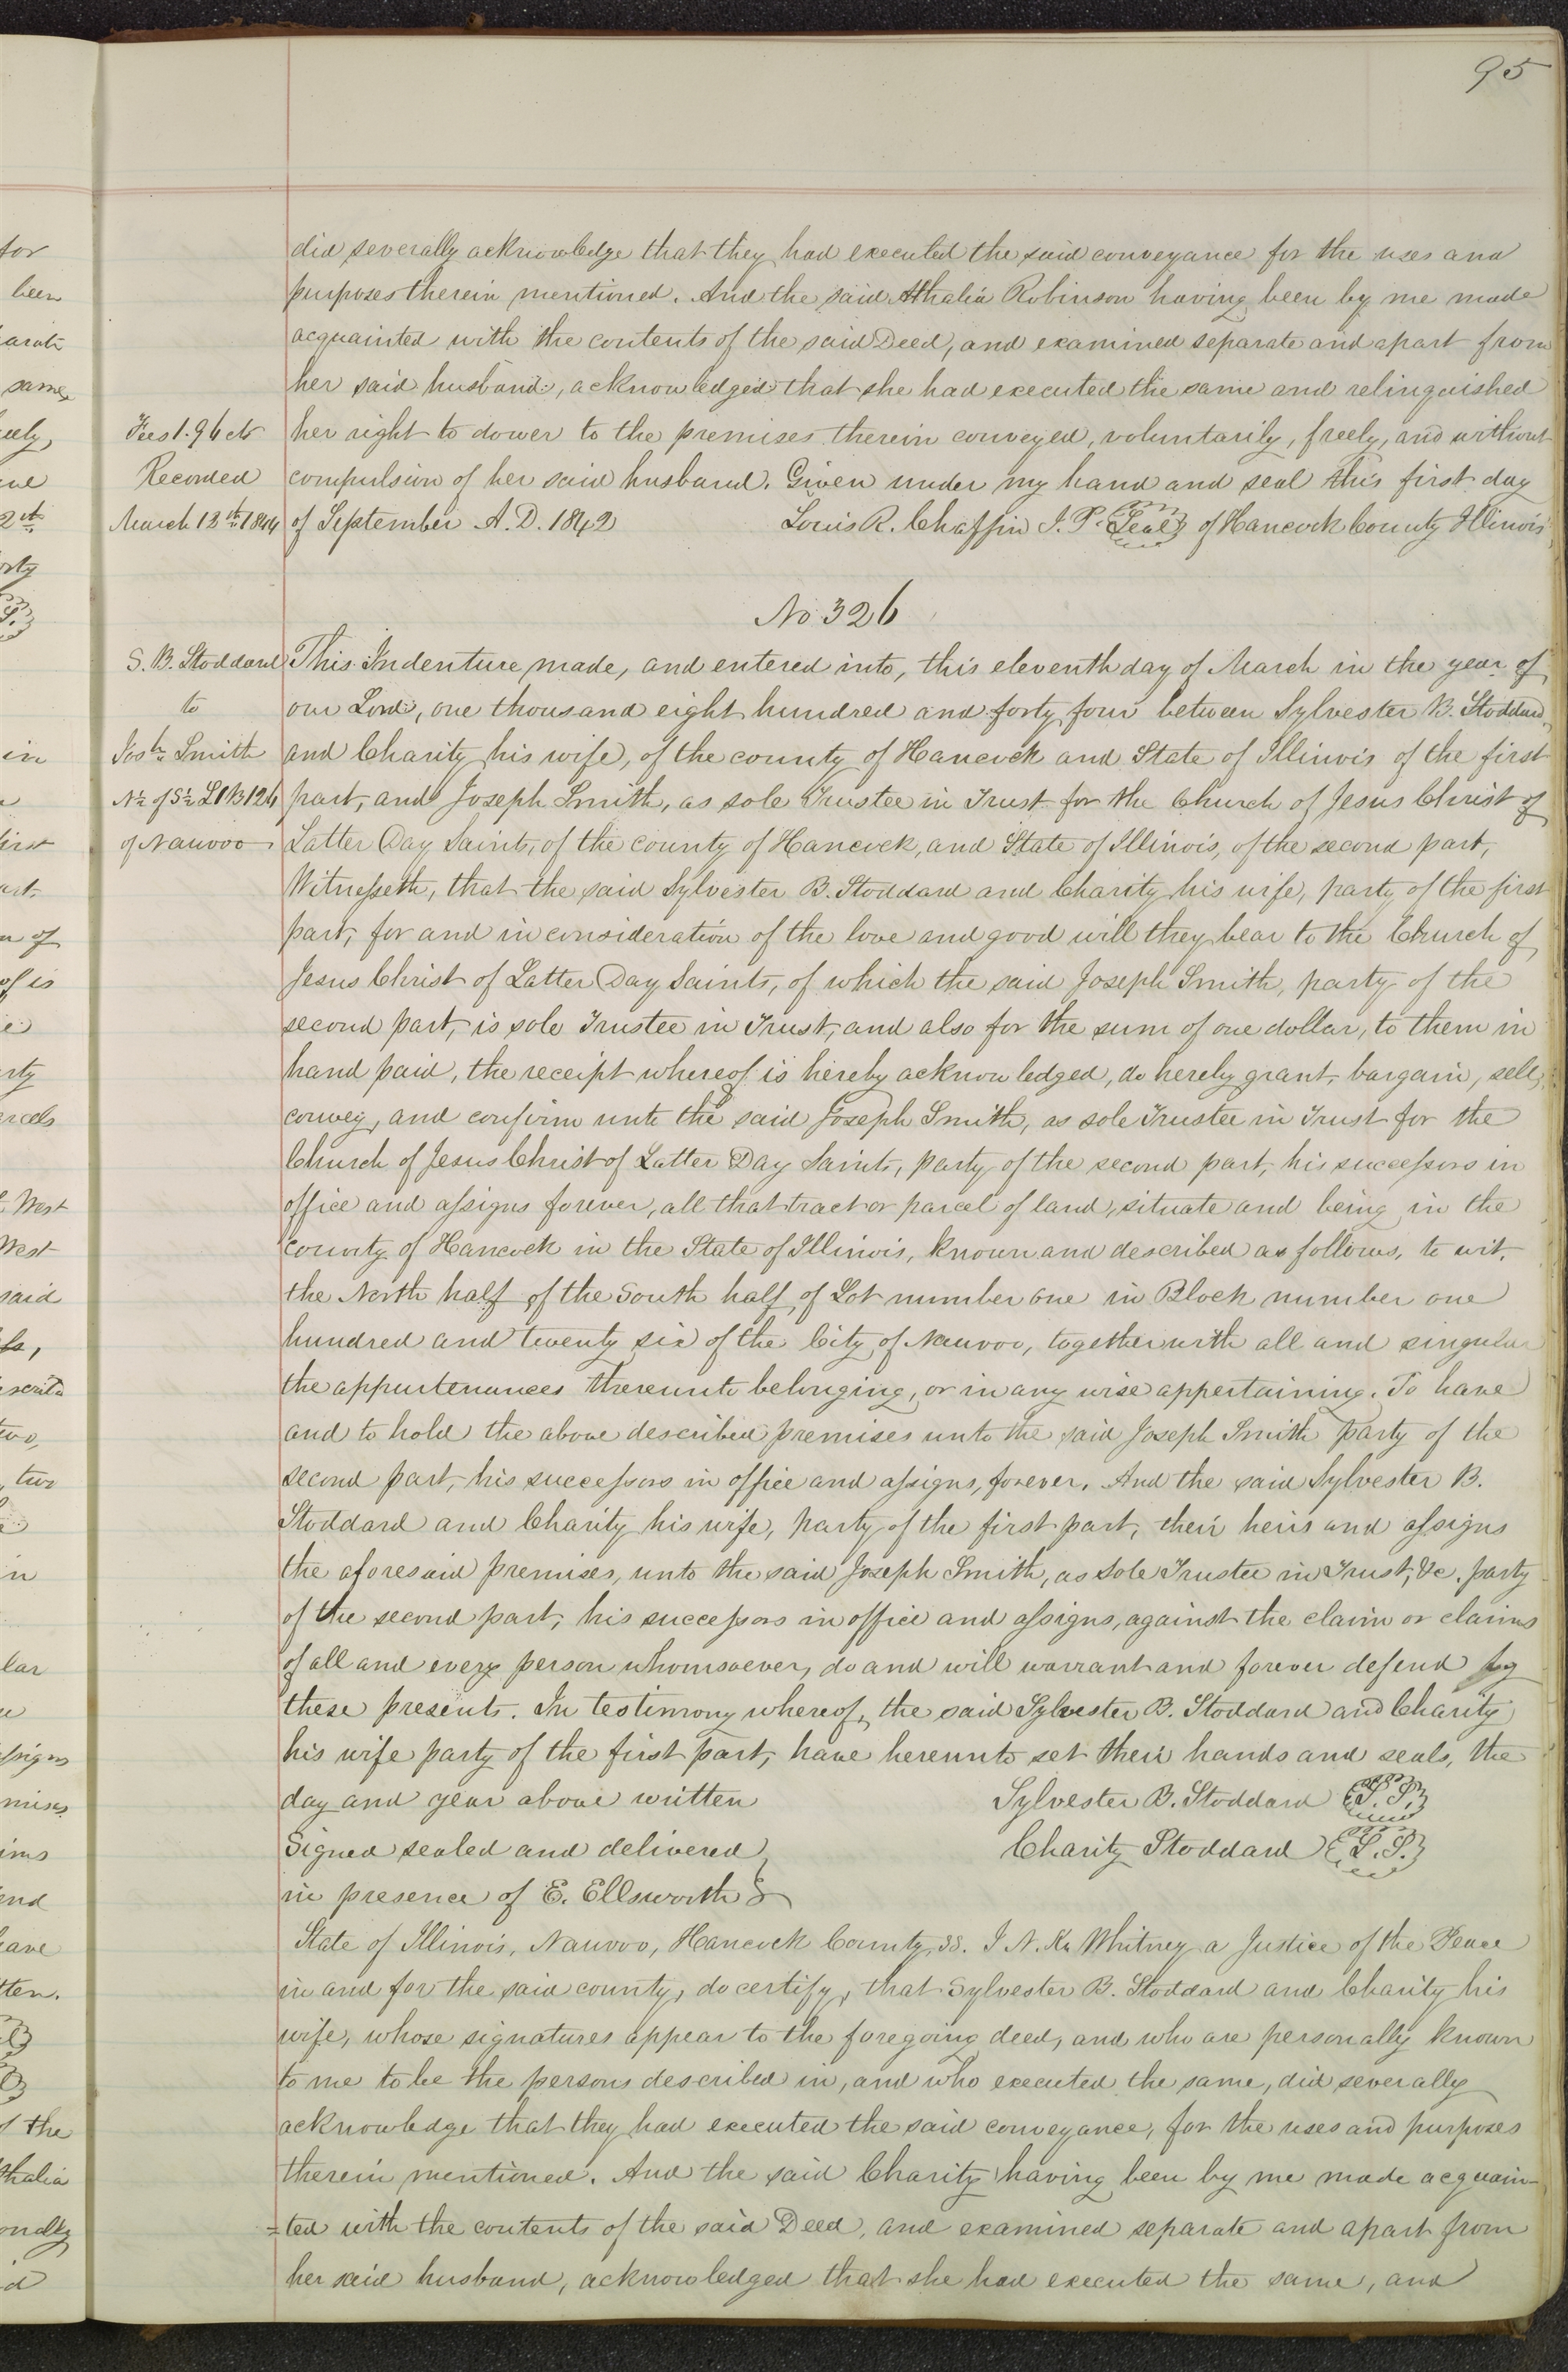 95
did severally acknowledge that they had executed the said conveyance for the uses and
purposes therein mentioned. And the said Athalia Robinson having been by me made
acquainted with the contents of the said Deed, and examined separate and apart from
her said husband, acknowledged that she had executed the same and relinquished
Fees 1.96 cts
her right to dower to the premises therein conveyed, voluntarily, freely, and without
Recorded
compulsion of her said husband. Given under my hand and seal this first day
March 13th 1844
of September A.D. 1842 Louis R. Chaffin J. P. Seal of Hancock County Illinois
No 326
S. B. Stoddard
to
Josh Smith
N½ of S½ L1 B126
of Nauvoo
This Indenture made, and entered into, this eleventh day of March in the year of
our Lord, one thousand eight hundred and forty four between Sylvester B. Stoddard,
and Charity his wife, of the county of Hancock and State of Illinois of the first
part, and Joseph Smith, as sole Trustee in Trust for the Church of Jesus Christ of
Latter Day Saints, of the county of Hancock, and State of Illinois, of the second part,
Witnesseth, that the said Sylvester B. Stoddard and Charity his wife, party of the first
part, for and in consideration of the love and good will they bear to the Church of
Jesus Christ of Latter Day Saints, of which the said Joseph Smith, party of the
second part, is sole Trustee in Trust, and also for the sum of one dollar, to them in
hand paid, the receipt whereof is hereby acknowledged, do hereby grant, bargain, sell,
convey, and confirm unto the said Joseph Smith, as sole Trustee in Trust for the
Church of Jesus Christ of Latter Day Saints, party of the second part, his successors in
office and assigns forever, all that tract or parcel of land, situate and being in the
county of Hancock in the State of Illinois, known and described as follows, to wit.
the North half of the South half of Lot number one in Block number one
hundred and twenty six of the City of Nauvoo, together with all and singular
the appurtenances thereunto belonging, or in any wise appertaining. To have
and to hold the above described premises unto the said Joseph Smith party of the
second part, his successors in office and assigns, forever. And the said Sylvester B.
Stoddard and Charity his wife, party of the first part, their heirs and assigns
the aforesaid premises, unto the said Joseph Smith, as sole Trustee in Trust, &c. party
of the second part, his successors in office and assigns, against the claim or claims
of all and every person whomsoever, do and will warrant and forever defend by
these presents. In testimony whereof, the said Sylvester B. Stoddard and Charity
his wife party of the first part, have hereunto set their hands and seals, the
day and year above written Sylvester B. Stoddard L.S.
Signed sealed and delivered Charity Stoddard L.S.
in presence of E. Ellsworth
State of Illinois, Nauvoo, Hancock County, ss. I N. K. Whitney a Justice of the Peace
in and for the said county, do certify, that Sylvester B. Stoddard and Charity his
wife, whose signatures appear to the foregoing deed, and who are personally known
to me to be the persons described in, and who executed the same, did severally
acknowledge that they had executed the said conveyance, for the uses and purposes
therein mentioned. And the said Charity having been by me made acquain-
=ted with the contents of the said Deed, and examined separate and apart from
her said husband, acknowledged that she had executed the same, and